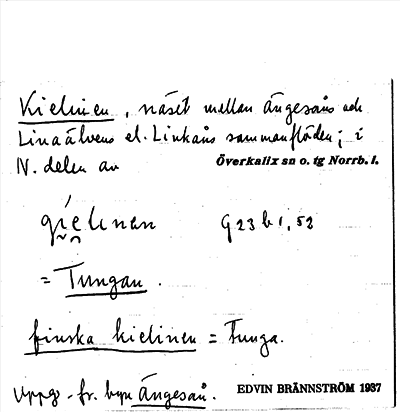 Kielinen, näset mellan Ängesåns och
Linaälvens el. Linkåns sammanflöden; i
N. delen av Överkalix sn o. tg Norrb. l.
gíelinen G 23 b 1, 52
= Tungan.
finska kielinen = Tunga.
Uppg. fr. byn Ängeså. EDVIN BRÄNNSTRÖM 1937